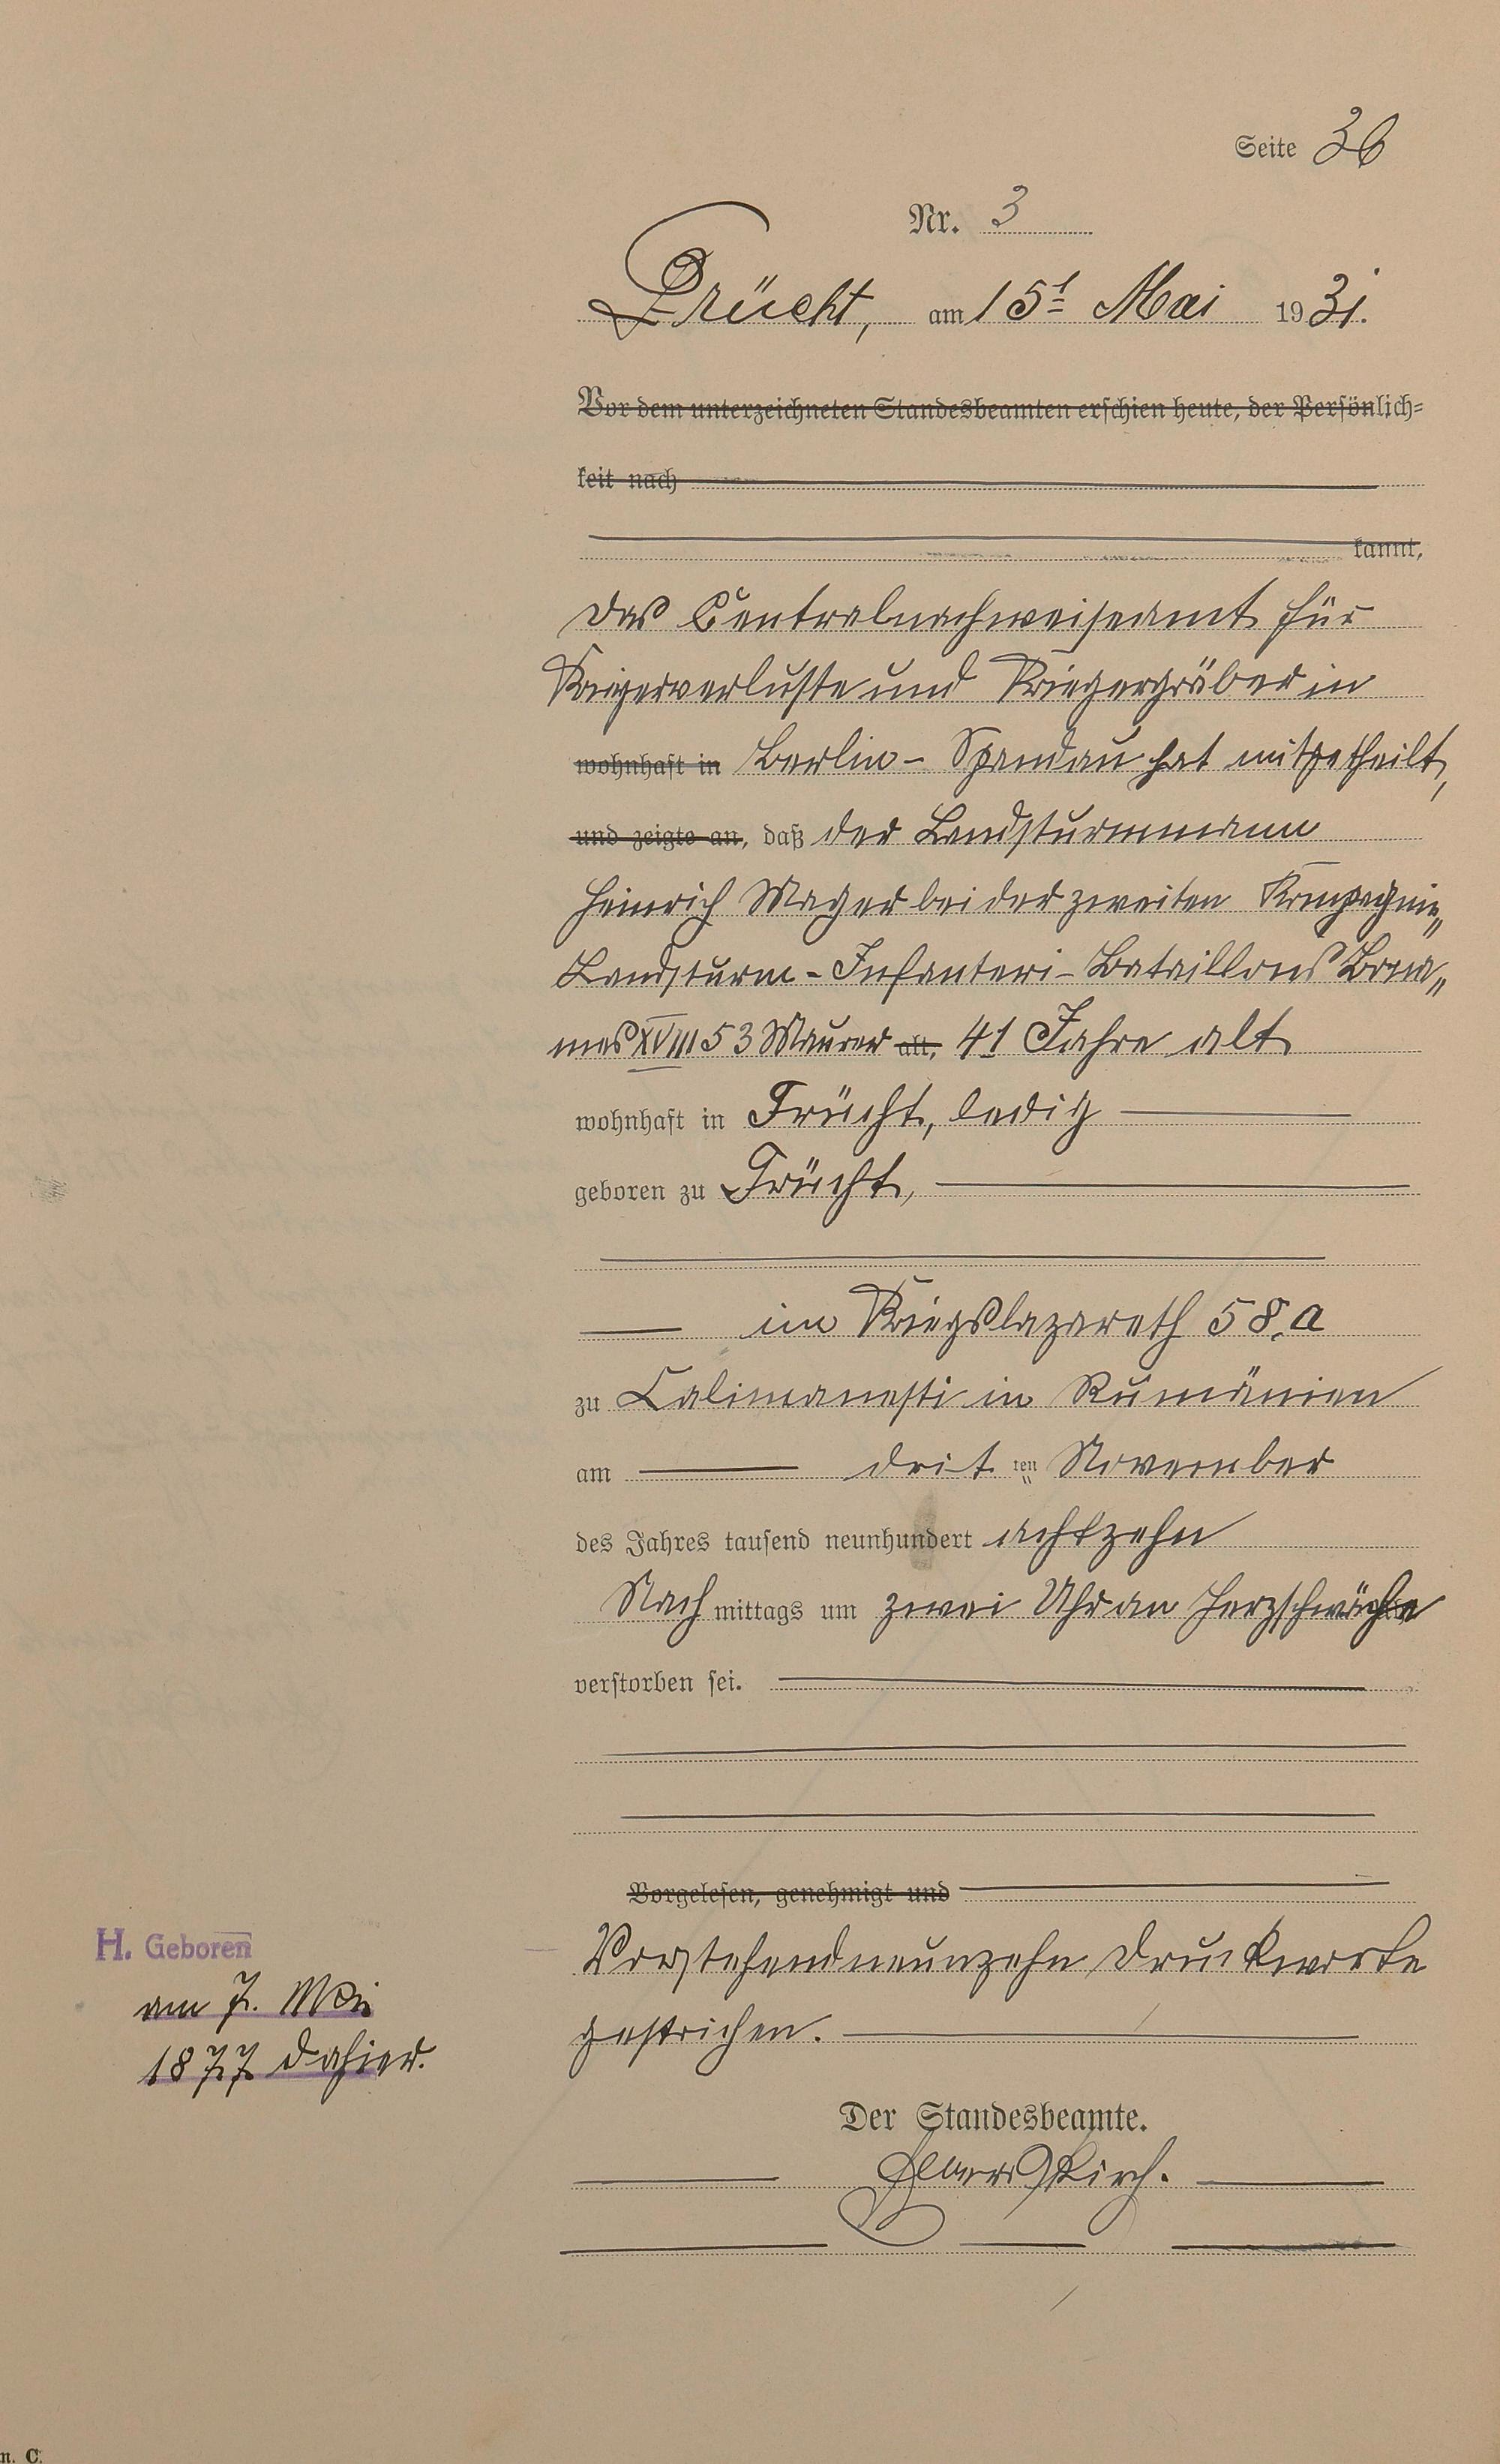 Seite 36
Nr. 3
Frücht, am 15t Mai 1931.
Vor dem unterzeichneten Standesbeamten erschien heute, der Persönlich=
keit nach
kannt,
Das Centralnachweiseamt für
Kriegerverluste und Kriegergräber in
wohnhaft in Berlin - Spandau hat mitgetheilt,
und zeigte an, daß der Landsturmmann
Heinrich Mager bei der zweiten Kompagnie„
Landsturm - Infanteri - Bataillons Bona„
mes XVIII 53 Maurer alt, 41 Jahre alt
wohnhaft in Frücht, ledig
geboren zu Frücht,
im Kriegslazareth 58.a
zu Calimanesti in Rumänien
am drit ten November
des Jahres tausend neunhundert achtzehn
Nach mittags um zwei Uhr an Herzschwäche
verstorben sei.
Vorgelesen, genehmigt und
Vorstehend neunzehn Druckworte
gestrichen.
H. Geboren
am 7. Mai
1877 dahier.
Der Standesbeamte.
n. C.